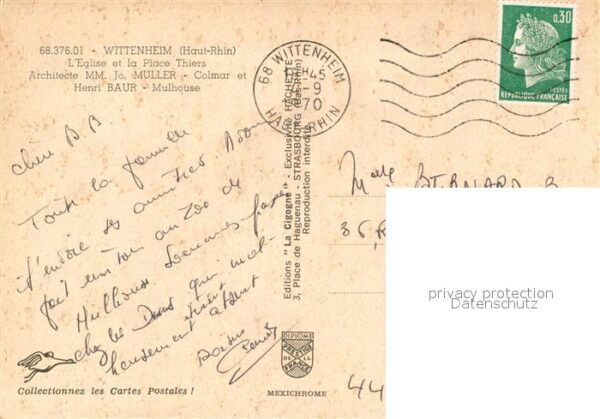 68.376.01 - WITTENHEIM (Haut-Rhin)
L'Eglise et la Place Thiers
Architecte MM. Jo. MULLER - Colmar et
Henri BAUR - Mulhouse
68 WITTENHEIM
H45
-9
1970
HAUT-RHIN
0,30
POSTES
REPUBLIQUE FRANÇAISE
Cher B B.
Toute la famille
t'envoie ses amitiés
fait un tour au Zoo de
Mulhouse
chez les qui mal-
heureusement
Baisers
Editions "La Cigogne" - Exclusivité HACHETTE
3, Place de Haguenau - STRASBOURG (Bas-Rhin)
Reproduction interdite
BERNARD B
36, R
44
privacy protection
Datenschutz
DIPLOME
PRESTIGE
DE LA
FRANCE
MEXICHROME
Collectionnez les Cartes Postales !